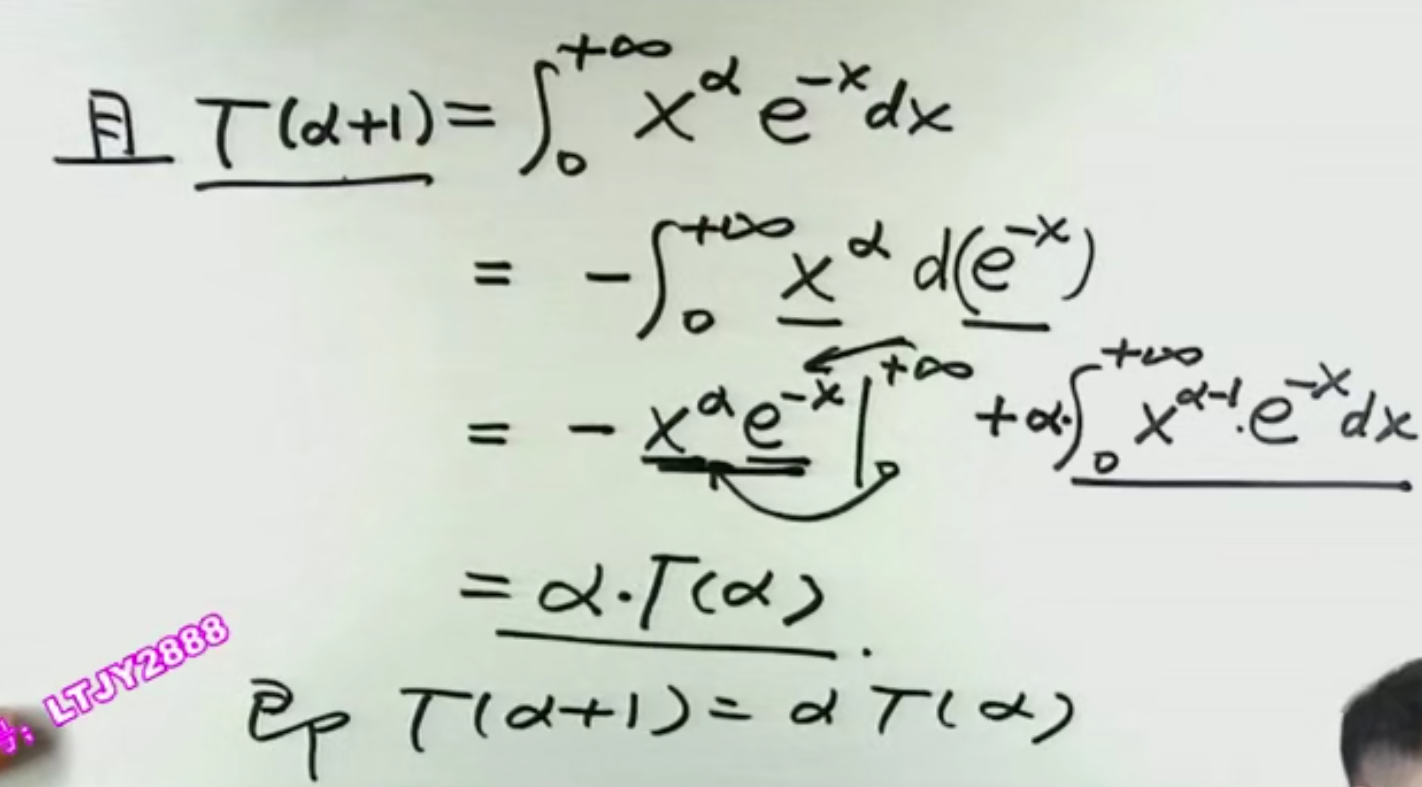 且 Γ(α+1)=∫₀^{+∞} x^α e^{-x}dx
= -∫₀^{+∞} x^α d(e^{-x})
= -x^α e^{-x}|₀^{+∞} +α·∫₀^{+∞} x^{α-1}·e^{-x}dx
=α·Γ(α).
即 Γ(α+1)=αΓ(α)
号: LTJY2888